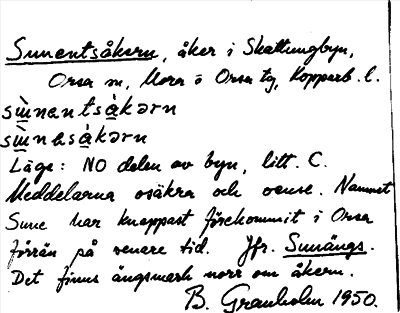 Sunentsåkern, åker i Skattungbyn,
Orsa sn, Mora o Orsa tg, Kopparb. l.
sɯ̀nəntsàkərn
sɯ̀nəsàkərn
Läge: NO delen av byn, litt. C.
Meddelarna osäkra och oense. Namnet
Sune har knappast förekommit i Orsa
förrän på senare tid. Jfr. Sunängs.
Det finns ängsmark norr om åkern.
B. Granholm 1950.